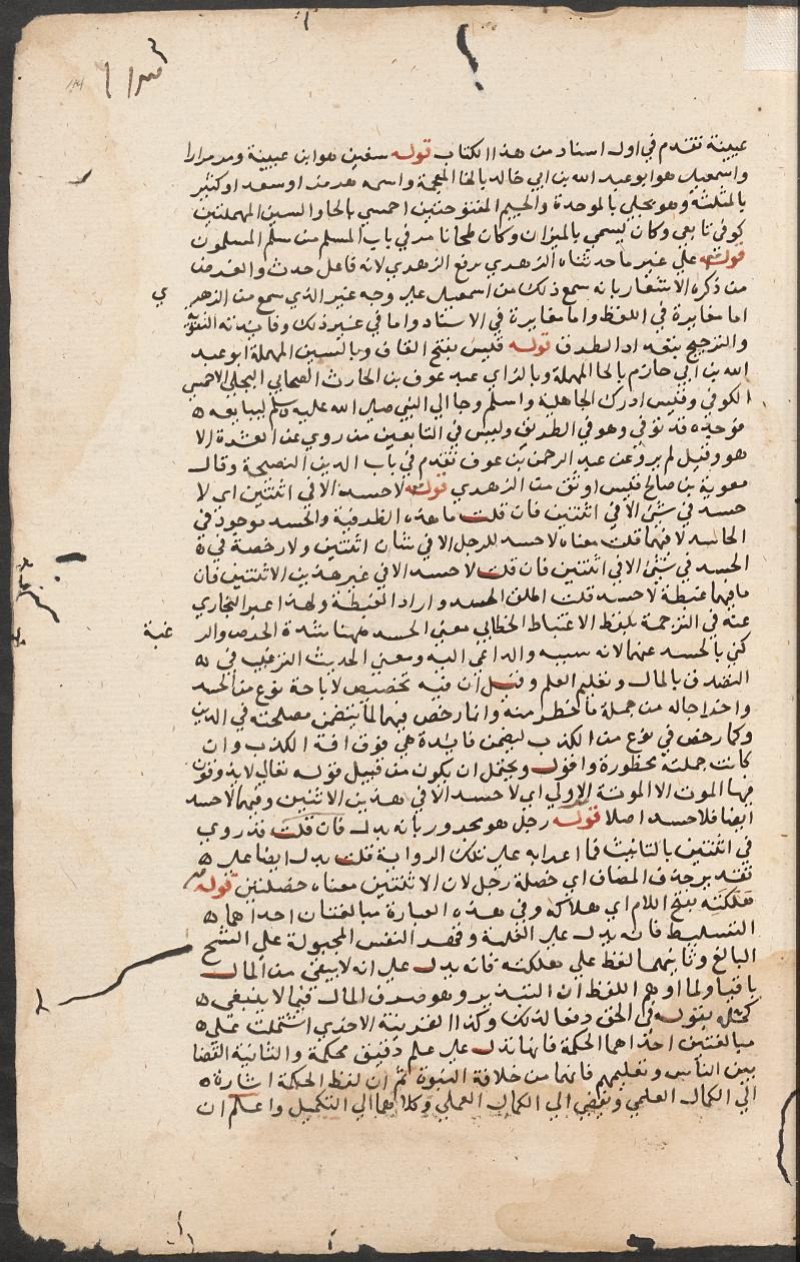 عيينة تقدم في اول اسناد من هذا الكتاب قوله سفين هو ابن عيينة ومر مرارا
واسمعيل هو ابو عبد الله بن ابي خالد بالخا المعجمة واسمه هرمز او سعد او كثير
بالمثلثة وهو بجلي بالموحدة والجيم المفتوحتين احمسي بالحا والسين المهملتين
كوفي تابعي وكان يسمي بالميزان وكان طحانا مر في باب المسلم من سلم المسلمون
قوله علي غير ما حدثناه الزهدي برفع الزهدي لانه فاعل حدث والغرض
من ذكره الاشعار بانه سمع ذلك من اسمعيل علي وجه غير الذي سمع من الزهر
ي
اما مغايرة في اللفظ واما مغايرة في الاسناد واما في غير ذلك وفايدته التقوية
والترجيح بتعداد الطرق قوله قيس بفتح القاف وبالسين المهملة ابو عبد
الله بن ابي حازم بالحا المهملة وبالزاي عبد عوف بن الحارث الصحابي البجلي الاحمسي
الكوفي وقيس ادرك الجاهلية واسلم وجا الي النبي صلي الله عليه وسلم ليبايعه
فوجده قد توفي وهو في الطريق وليس في التابعين من روي عن العشرة الا
هو وقيل لم يرو عن عبد الرحمن بن عوف تقدم في باب الدين النصيحة وقال
معوية بن صالح قيس اوثق من الزهدي قوله لا حسد الا في اثنتين اي لا
حسد في شي الا في اثنتين فان قلت ما هذه الظرفية والحسد موجود في
الحاسد لا فيهما قلت معناه لا حسد للرجل الا في شان اثنتين ولا رخصة في
الحسد في شي الا في اثنتين فان قلت لا حسد الا في غير هذين الاثنتين فان
ما فيهما غبطة لا حسد قلت اطلق الحسد واراد الغبطة ولهذا عبر البخاري
عنه في الترجمة بلفظ الاغتباط الخطابي معني الحسد ههنا شدة الحرص والر
غبة
كني بالحسد عنهما لانه سببه والداعي اليه ومعني الحديث الترغيب في
التصدق بالمال وتعليم العلم وقيل ان فيه تخصيص لاباحة نوع من الحسد
واخراجاله من جملة ما حظر منه وانما رخص فيهما لما يتضمن مصلحته في الدين
وكما رخص في نوع من الكذب ليضمن فايدة هي فوق افة الكذب وان
كانت جملته محظورة واقول ويحتمل ان يكون من قبيل قوله تعالي لا يذوقون
فيها الموت الا الموتة الاولي اي لا حسد الا في هذين الاثنتين وفيهما لا حسد
ايضا فلا حسد اصلا قوله رجل هو مجرور بانه بدل فان قلت قد روي
في اثنتين بالتانيث فما اعرابه علي تلك الرواية قلت بدل ايضا علي
تقدير حذف المضاف اي خصلة رجل لان الاثنتين معناه خصلتين قوله
هلكته بفتح اللام اي هلاكه وفي هذه العبارة مبالغتان احداهما
التسليط فانه يدل علي الغلبة وقهر النفس المجبولة علي الشح
البالغ وثانيهما لفظ علي هلكته فانه يدل علي انه لا يبقي من المال
باقيا ولما اوهم اللفظ ان التبذير وهو صرف المال فيما لا ينبغي
كمل بقوله في الحق دفعا لذلك وكذا القرينة الاخري اشتملت علي
مبالغتين احداهما الحكمة فانها تدل علي علم دقيق محكمة والثانية القضا
بين الناس وتعليمهم فانها من خلافة النبوة ثم ان لفظ الحكمة اشارة
الي الكمال العلمي ويقضي الي الكمال العملي وكلاهما الي التكميل واعلم ان